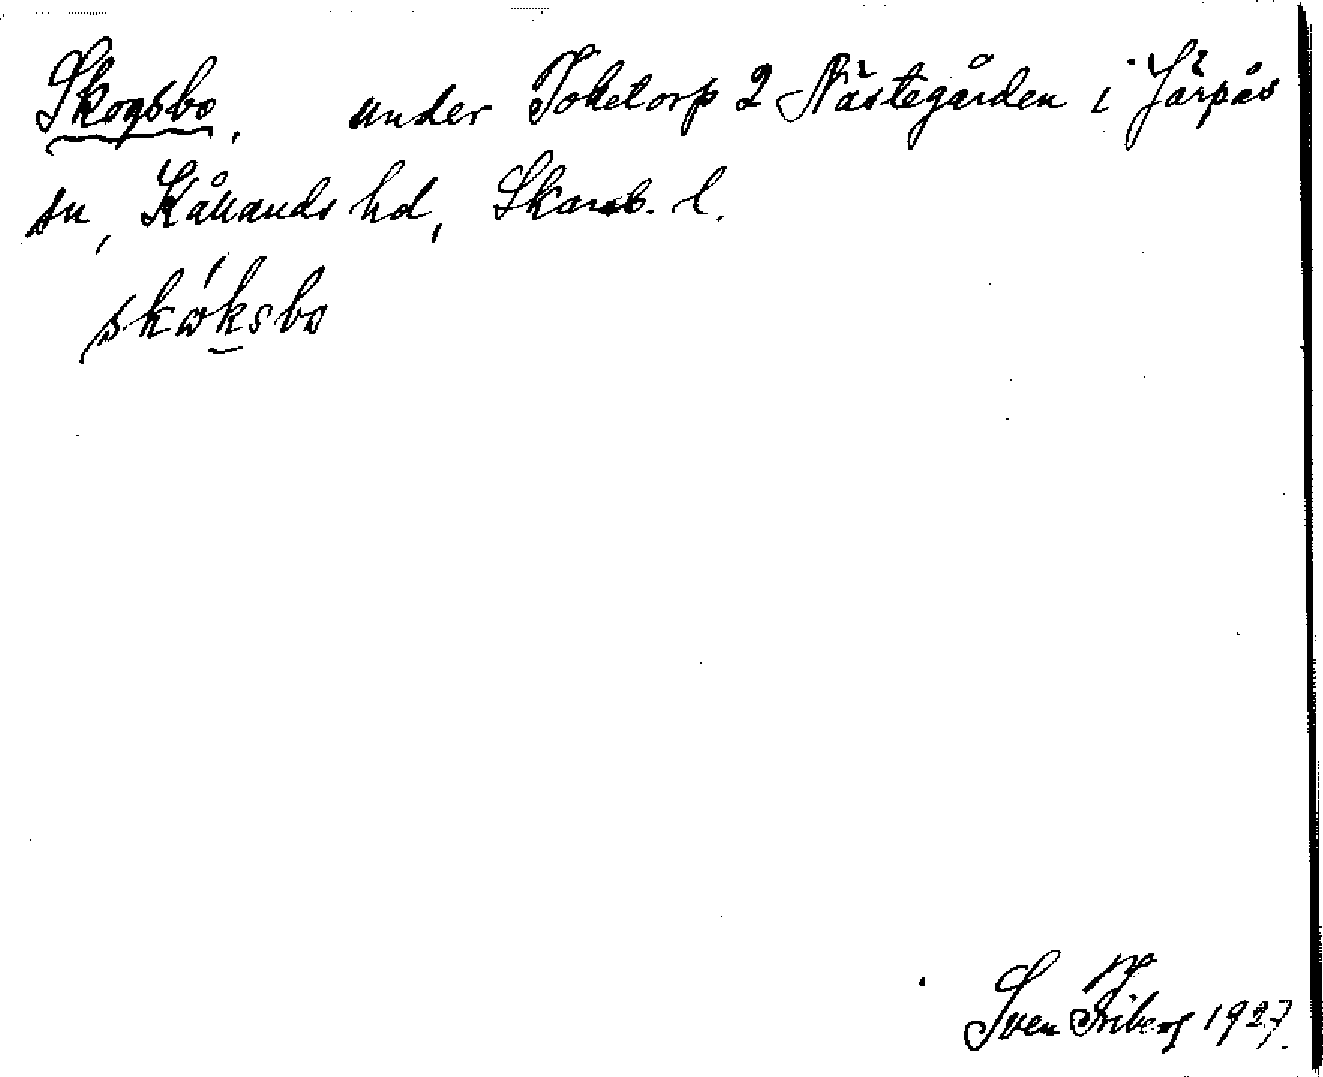 Skogsbo, under Toketorp 2 Nästegården i Järpås
sn, Kållands hd, Skarab. l.
skωksbω
Sven Friberg 1927.